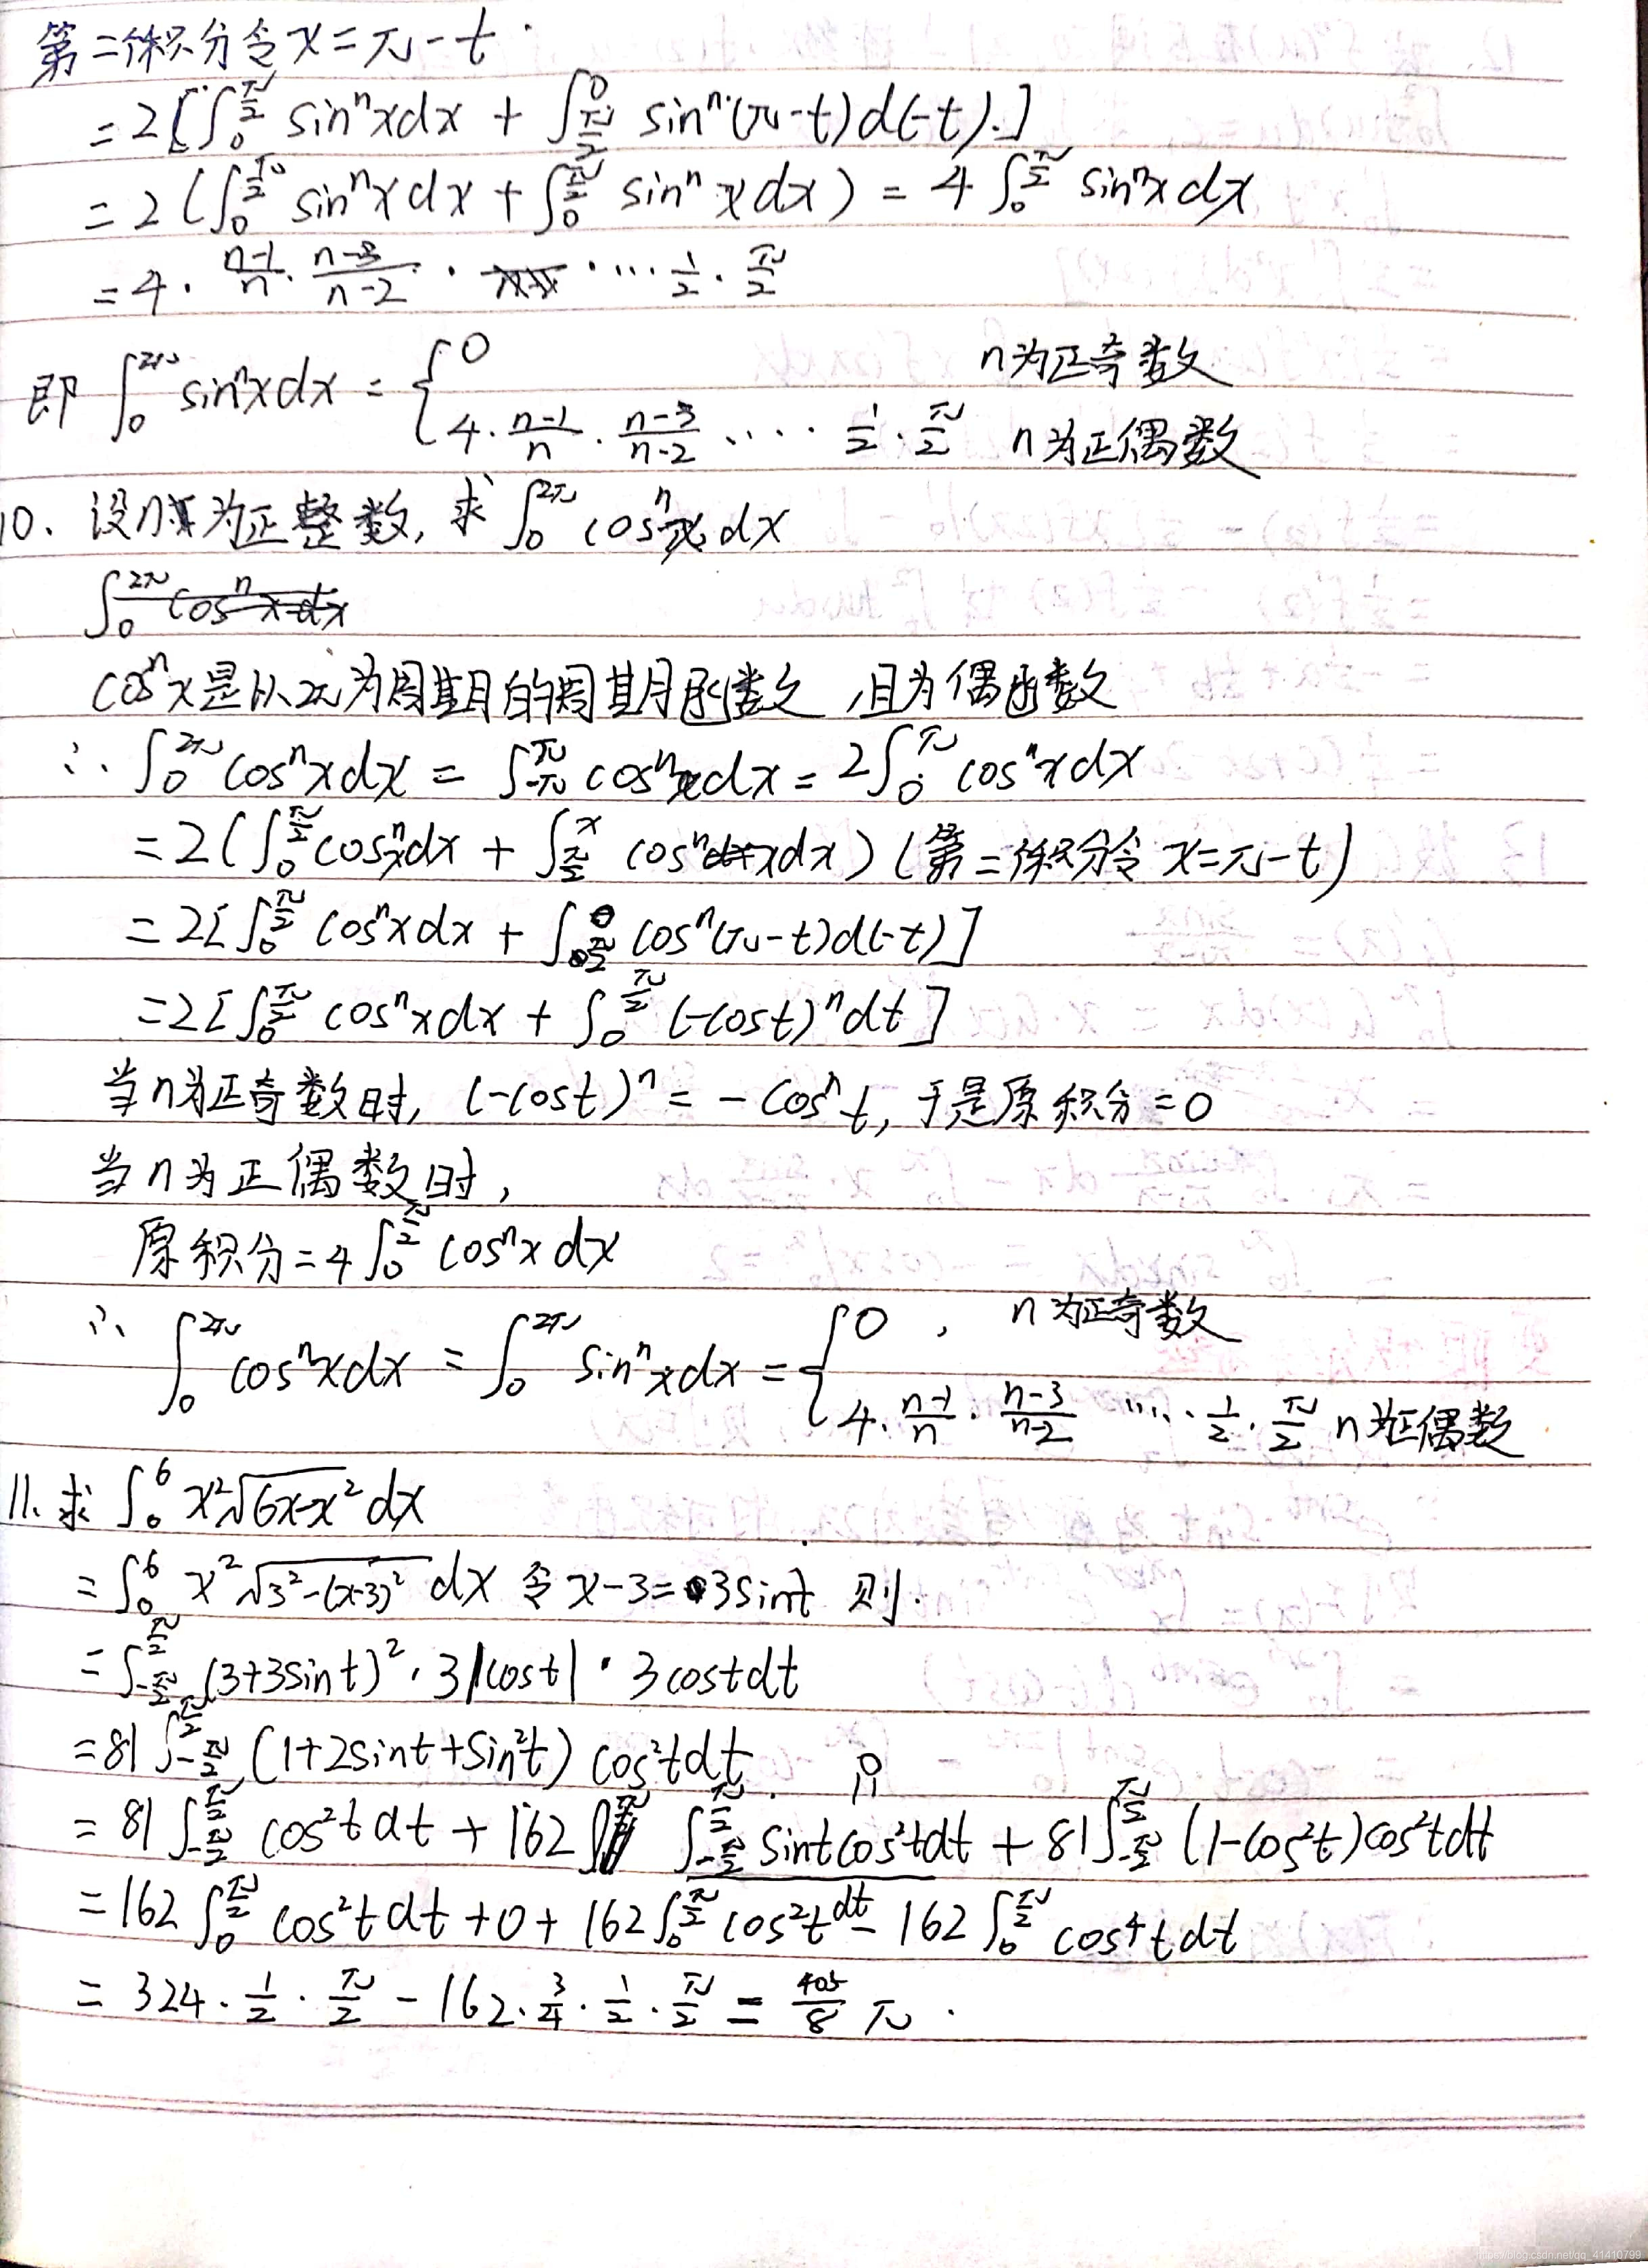 第二积分令 x = π - t
= 2[∫₀^(π/2) sinⁿx dx + ∫_(π/2)^0 sinⁿ(π-t)d(-t)]
= 2(∫₀^(π/2) sinⁿx dx + ∫₀^(π/2) sinⁿx dx) = 4∫₀^(π/2) sinⁿx dx
= 4 · (n-1)/n · (n-3)/(n-2) · ··· 1/2 · π/2
即 ∫₀^(2π) sinⁿx dx = { 0 n为正奇数
4 · (n-1)/n · (n-3)/(n-2) ···· 1/2 · π/2 n为正偶数
10. 设n为正整数, 求 ∫₀^(2π) cosⁿx dx
∫₀^(2π) cosⁿx dx
cosⁿx是以2π为周期的周期函数,且为偶函数
∴ ∫₀^(2π) cosⁿx dx = ∫_(-π)^π cosⁿx dx = 2∫₀^π cosⁿx dx
= 2(∫₀^(π/2) cosⁿx dx + ∫_(π/2)^x cosⁿx dx) (第二积分令 x=π-t)
= 2[∫₀^(π/2) cosⁿx dx + ∫_(π/2)^0 cosⁿ(π-t)d(-t)]
= 2[∫₀^(π/2) cosⁿx dx + ∫₀^(π/2) (-cost)ⁿdt]
当n为正奇数时, (-cost)ⁿ = -cosⁿt, 于是原积分=0
当n为正偶数时,
原积分=4∫₀^(π/2) cosⁿx dx
∴ ∫₀^(2π) cosⁿx dx = ∫₀^(2π) sinⁿx dx = { 0 , n为正奇数
4 · (n-1)/n · (n-3)/(n-2) ···· 1/2 · π/2 n为正偶数
11. 求 ∫₀^6 x²√(6x-x²) dx
= ∫₀^6 x²√(3²-(x-3)²) dx 令 x-3=3sint 则.
= ∫_(-π/2)^(π/2) (3+3sint)² · 3|cost| · 3costdt
= 81∫_(-π/2)^(π/2) (1+2sint+sin²t) cos²tdt
0
= 81∫_(-π/2)^(π/2) cos²t dt + 162 ∫_(-π/2)^(π/2) sintcos²tdt + 81∫_(-π/2)^(π/2) (1-cos²t)cos²tdt
= 162∫₀^(π/2) cos²t dt + 0 + 162∫₀^(π/2) cos²t dt - 162∫₀^(π/2) cos⁴t dt
= 324 · 1/2 · π/2 - 162 · 3/4 · 1/2 · π/2 = 405/8 π.
https://blog.csdn.net/qq_41410799